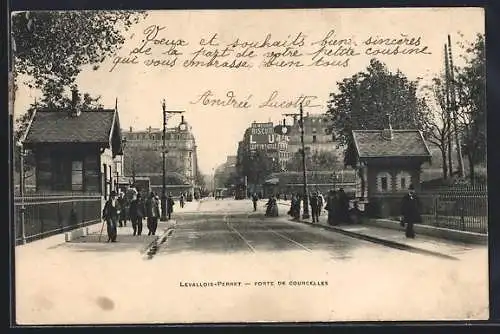 Vœux et souhaits bien sincères
de la part de votre petite cousine
qui vous embrasse bien tous
Andrée Lucotte
BISCUIT
LEVALLOIS-PERRET — PORTE DE COURCELLES